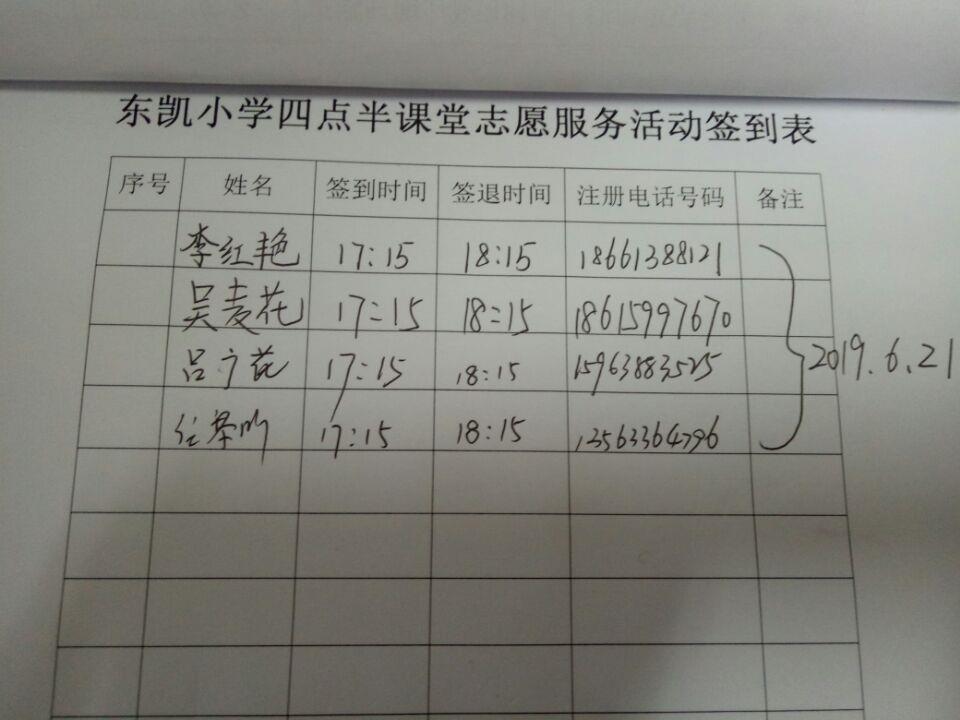 东凯小学四点半课堂志愿服务活动签到表
序号 姓名 签到时间 签退时间 注册电话号码 备注
李红艳 17:15 18:15 18661388121
吴麦花 17:15 18:15 18615997670
2019.6.21
吕宁花 17:15 18:15 15963883525
17:15 18:15 13563364796